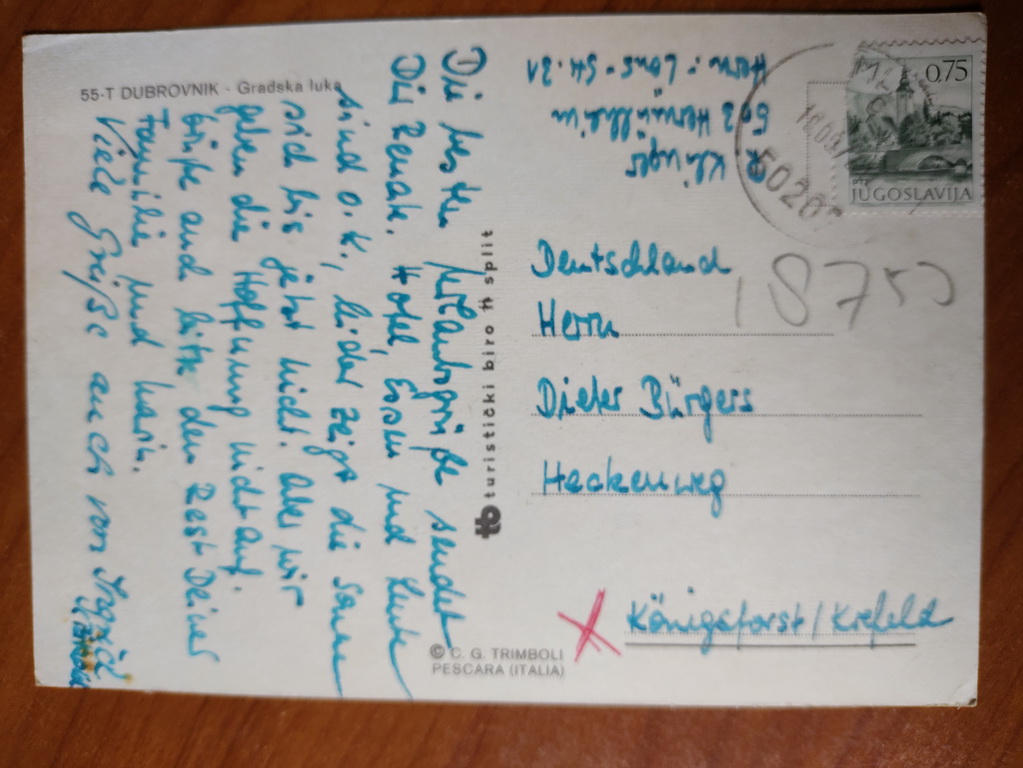 55-T DUBROVNIK - Gradska luka
Die besten Urlaubsgrüße sendet
Dir Renate. Hotel, Essen und Leute
sind o.k., leider zeigt die Sonne
sich bis jetzt nicht. Aber wir
geben die Hoffnung nicht auf.
Grüße auch bitte den Rest Deiner
Familie und
Viele Grüße auch von Ingrid
turistički biro split
© C. G. TRIMBOLI
PESCARA (ITALIA)
R. Klinger
503 Hermülheim
Herm.-Löns-Str. 21
0,75
JUGOSLAVIJA
50207
Deutschland
18750
Herrn
Dieter Bürgers
Heckenweg
Königsforst/Krefeld